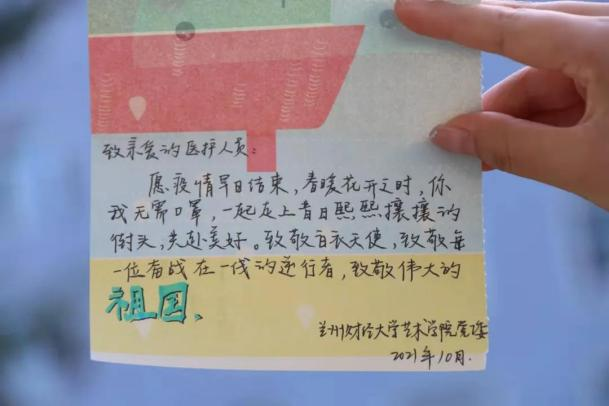 致亲爱的医护人员:
愿疫情早日结束,春暖花开之时,你
我无需口罩,一起走上昔日熙熙攘攘的
街头,共赴美好。致敬白衣天使,致敬每
一位奋战在一线的逆行者,致敬伟大的
祖国、
兰州财经大学艺术学院党委
2021年10月.